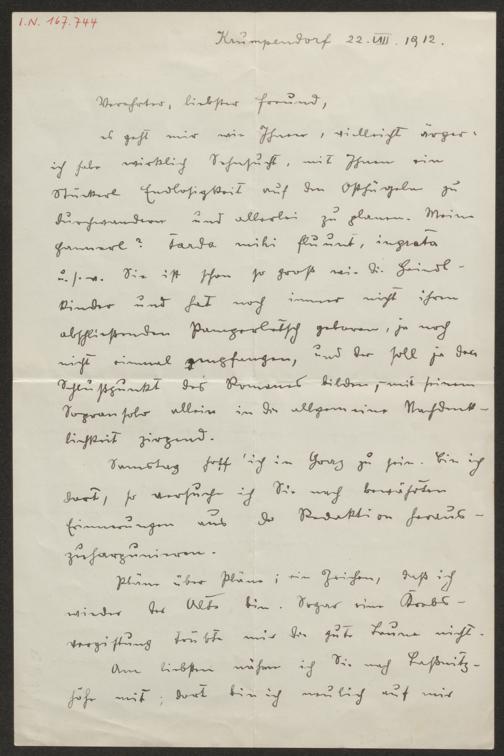 I.N. 167.744
Krumpendorf 22.VIII.1912.
Verehrter, liebster Freund,
es geht mir wie Ihnen, vielleicht ärger:
ich habe wirklich Sehnsucht, mit Ihnen ein
Stückerl Endlosigkeit auf den Osthügeln zu
durchwandern und allerlei zu planen. Meine
Hannerl? Tarda mihi fluunt, ingrata
u.s.w. Sie ist schon so groß wie die Heindl-
kinder und hat noch immer nicht ihren
abschließenden Pamperletsch geboren, ja noch
nicht einmal empfangen, und der soll ja den
Schlußpunkt des Romanes bilden, mit seinem
Sopransolo allein in die allgemeine Nachdenk-
lichkeit zirpend.
Samstag hoff' ich in Graz zu sein. Bin ich
dort, so versuche ich Sie nach bewährten
Erinnerungen aus der Redaktion heraus-
zuharpunieren.
Pläne über Pläne; ein Zeichen, daß ich
wieder der Alte bin. Sogar eine Krebs-
vergiftung trübte mir die gute Laune nicht.
Am liebsten nähme ich Sie nach Laßnitz-
höhe mit; dort bin ich neulich auf mir